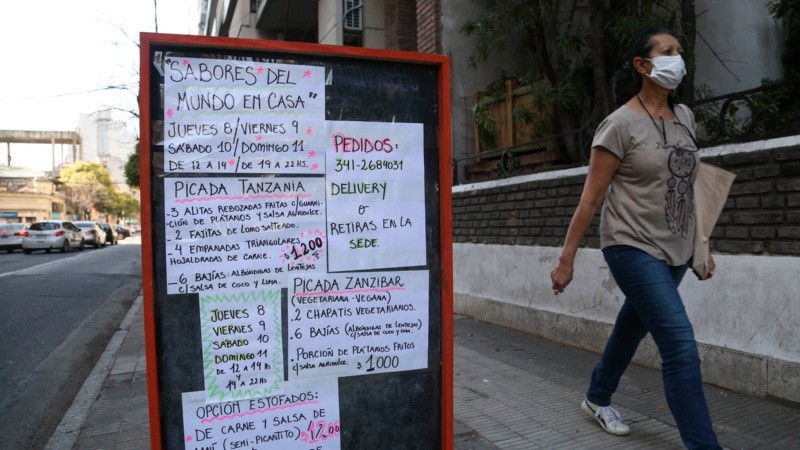 "SABORES DEL
MUNDO EN CASA"
JUEVES 8/VIERNES 9
SÁBADO 10/DOMINGO 11
DE 12 A 14 / DE 19 A 22 HS.
PEDIDOS:
341-2684031
DELIVERY
&
RETIRAS EN LA
SEDE.
PICADA TANZANIA
-3 ALITAS REBOZADAS C/GUARNI-
CIÓN DE PLÁTANOS Y SALSA AGRIDULCE.
- 2 FAJITAS DE LOMO SALTEADO.
-4 EMPANADAS TRIANGULARES
HOJALDRADAS DE CARNE.
$1200
-6 BAJÍAS: ALBÓNDIGAS DE LENTEJAS
C/SALSA DE COCO Y LIMA.
PICADA ZANZIBAR
(VEGETARIANA - VEGANA)
.2 CHAPATIS VEGETARIANOS.
. 6 BAJÍAS (ALBÓNDIGAS DE LENTEJAS
C/SALSA DE COCO Y LIMA.
. PORCIÓN DE PLÁTANOS FRITOS
C/SALSA AGRIDULCE. $1000
JUEVES 8
VIERNES 9
SÁBADO 10
DOMINGO 11
DE 12 A 14 HS
Y
19 A 22 HS
OPCIÓN ESTOFADOS:
DE CARNE Y SALSA DE
MANÍ (SEMI-PICANTITO) $1200